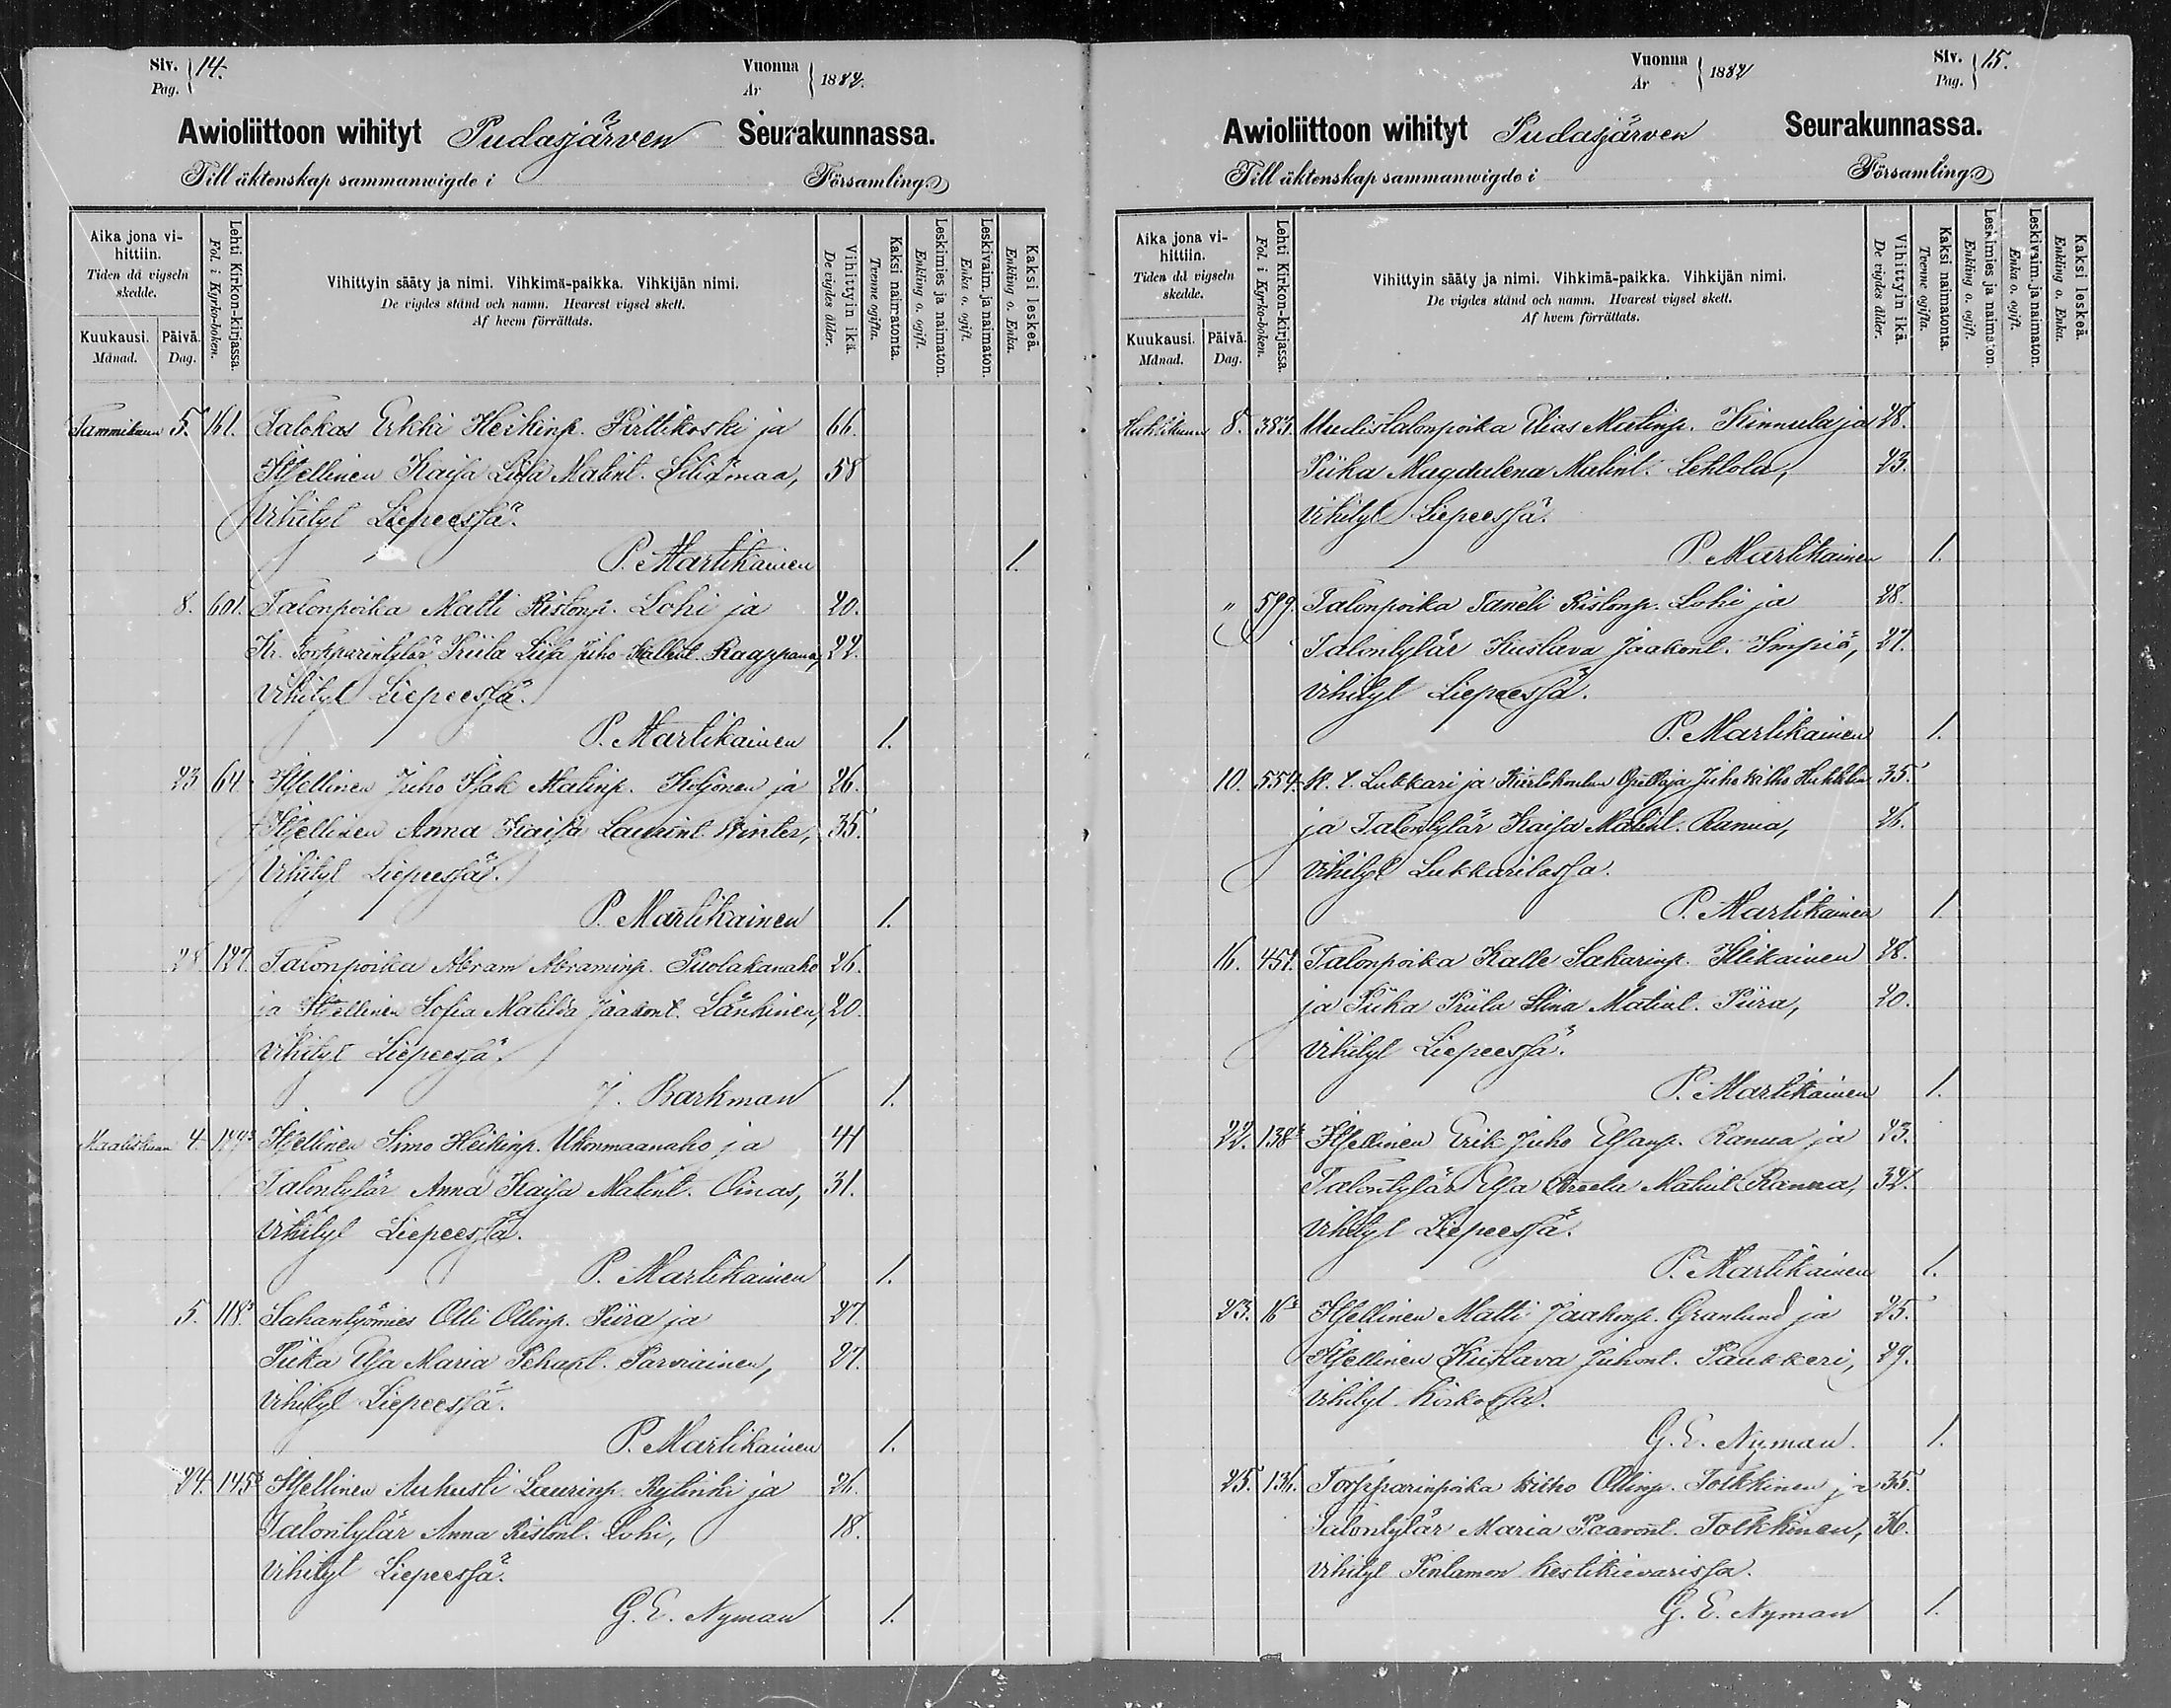 Siv. Pag. 14.
Vuonna År 1882.
Awioliittoon wihityt Pudasjärven Seurakunnassa.
Till äktenskap sammanwigde i Församling
Aika jona vihittiin.
Tiden då vigseln skedde.
Kuukausi. Månad.
Päivä. Dag.
Lehti Kirkon-kirjassa.
Fol. i Kyrko-boken.
Vihittyin sääty ja nimi. Vihkimä-paikka. Vihkijän nimi.
De vigdes stånd och namn. Hvarest vigsel skett.
Af hvem förrättats.
Vihittyin ikä.
De vigdes ålder.
Kaksi naimatonta.
Tvenne ogifta.
Leskimies ja naimaton.
Enkling o. ogift.
Leskivaim. ja naimaton.
Enka o. ogift.
Kaksi leskeä.
Enkling o. Enka.
Tammikuun 5. 161. Talokas Erkki Heikinp. Pirttikoski ja 66.
Itsellinen Kaisa Liisa Matint. 58
Vihityt Liepeessä.
P. Martikainen 1.
8. 601. Talonpoika Matti Ristonp. Lohi ja 20.
Torpparintytär Priita Liisa Juho Kallent. 22.
Vihityt Liepeessä.
P. Martikainen 1.
23 64. Itsellinen Juho Isak Matinp. Koljonen ja 26.
Itsellinen Anna Kaisa Laurint. Winter, 35.
Vihityt Liepeessä.
P. Martikainen 1.
127. Talonpoika Abram Abraminp. Puolakanaho 26.
ja Itsellinen Sofia Matilda Jaakont. Länkinen, 20.
Vihityt Liepeessä.
J. Barkman 1.
Maaliskuun 4. Itsellinen Simo Heikinp. Ukonmaanaho ja 41
Talontytär Anna Kaisa Matint. Oinas, 31.
Vihityt Liepeessä.
P. Martikainen 1.
5. 118. Sahantyömies Olli Ollinp. Piira ja 27.
Piika Elsa Maria Pekant. Parviainen, 27.
Vihityt Liepeessä.
P. Martikainen 1.
24. 145 Itsellinen Auhusti Laurinp. Rytinki ja 26.
Talontytär Anna Ristont. Lohi, 18.
Vihityt Liepeessä.
G. E. Nyman 1.
Vuonna År 1882
Siv. Pag. 15.
Awioliittoon wihityt Pudasjärven Seurakunnassa.
Till äktenskap sammanwigde i Församling
Aika jona vihittiin.
Tiden då vigseln skedde.
Kuukausi. Månad.
Päivä. Dag.
Lehti Kirkon-kirjassa.
Fol. i Kyrko-boken.
Vihittyin sääty ja nimi. Vihkimä-paikka. Vihkijän nimi.
De vigdes stånd och namn. Hvarest vigsel skett.
Af hvem förrättats.
Vihittyin ikä.
De vigdes ålder.
Kaksi naimatonta.
Tvenne ogifta.
Leskimies ja naimaton.
Enkling o. ogift.
Leskivaim. ja naimaton.
Enka o. ogift.
Kaksi leskeä.
Enkling o. Enka.
Huhtikuun 8. 383. Uudistalonpoika Elias Matinp. Kinnula ja 28.
Piika Magdalena Matint. Lehtola, 23.
Vihityt Liepeessä.
P. Martikainen 1.
" 599. Talonpoika Taneli Ristonp. Lohi ja 28.
Talontytär Kustava Jaakont. Impiö, 27.
Vihityt Liepeessä.
P. Martikainen 1.
10. 554. Lukkari ja Kiertokoulun Opettaja Juho 35.
ja Talontytär Kaisa Matint. Ranua, 26.
Vihityt Lukkarilassa.
P. Martikainen 1.
16. 454. Talonpoika Kalle Sakarinp. Illikainen 28.
ja Piika Priita Stina Matint. Piira, 20.
Vihityt Liepeessä.
P. Martikainen 1.
22. 138 Itsellinen Erik Juho Elsanp. Ranua ja 23.
Talontytär Elsa Greeta Matint. Ranua, 32.
Vihityt Liepeessä.
P. Martikainen 1.
23. 16 Itsellinen Matti Jaakonp. Granlund ja 25.
Itsellinen Kustava Juhont. Paukkeri, 29.
Vihityt Kirkossa.
G. E. Nyman. 1.
25. 136. Torpparinpoika Wilho Ollinp. Tolkkinen ja 35.
Talontytär Maria Paavont. Tolkkinen, 36.
Vihityt Pintamon Kestikievarissa.
G. E. Nyman 1.